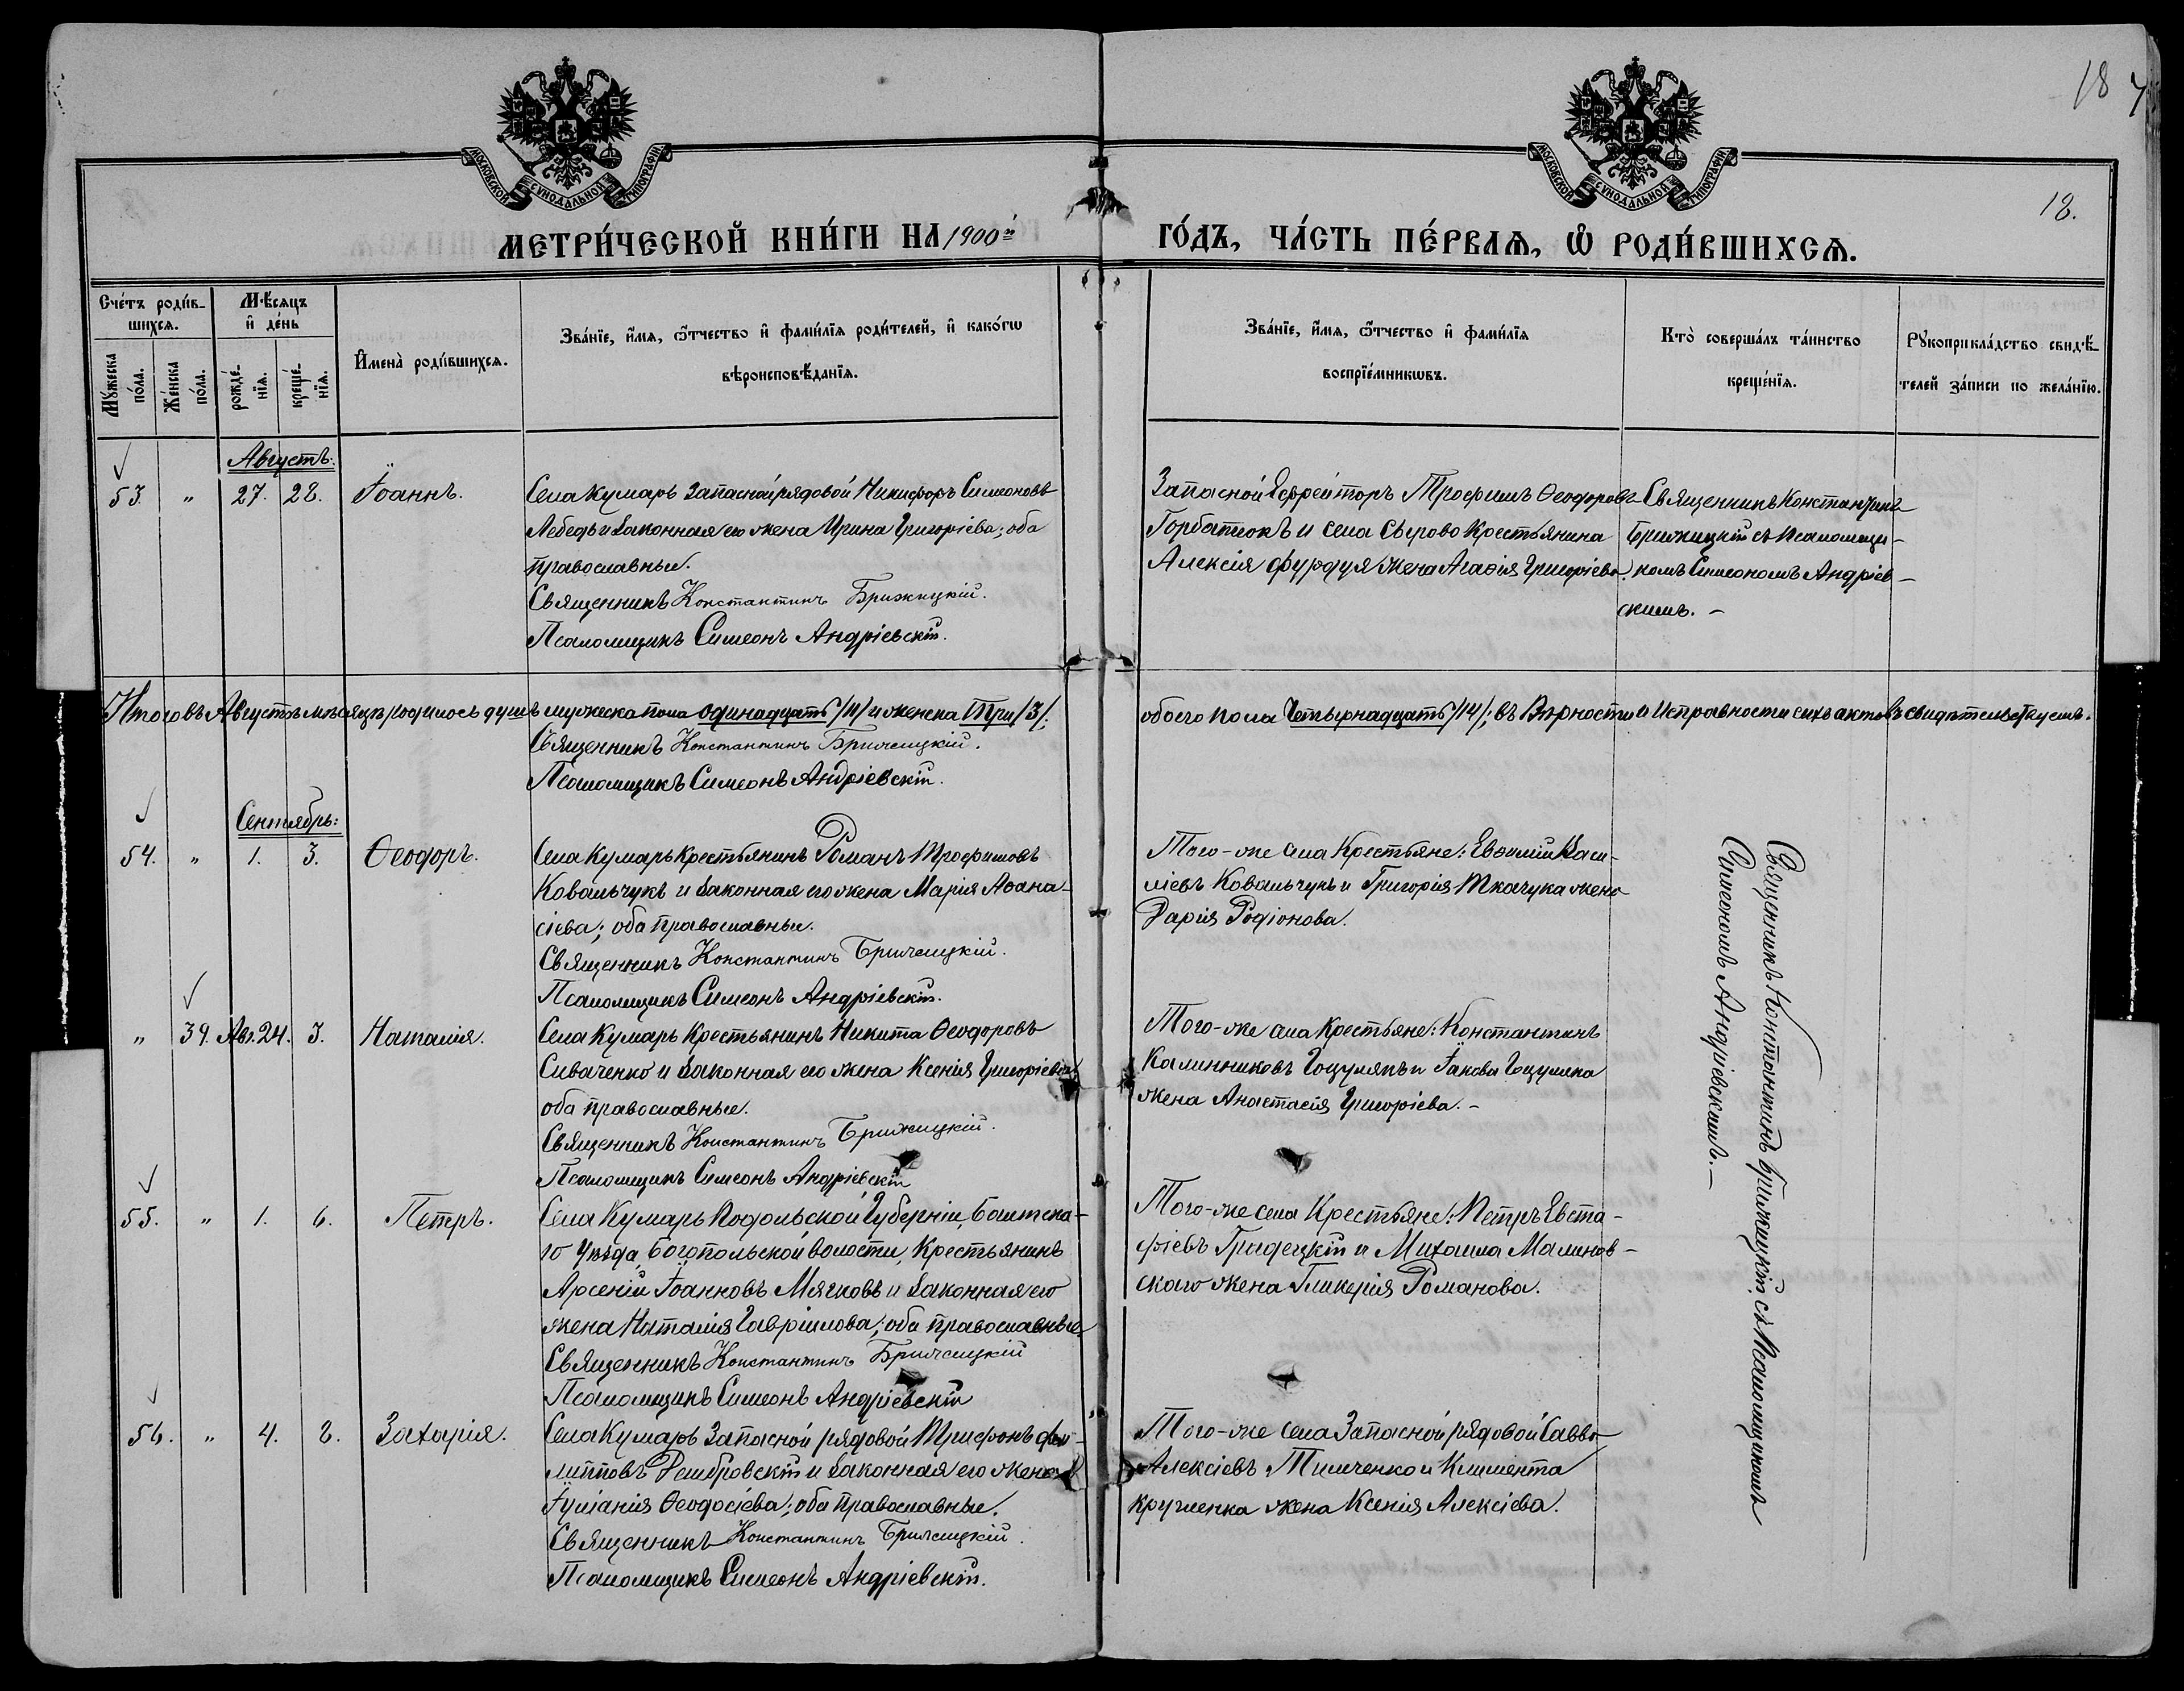 18
МОСКОВСКОЙ СѴНОДАЛЬНОЙ ТИПОГРАФІИ
МОСКОВСКОЙ СѴНОДАЛЬНОЙ ТИПОГРАФІИ
18.
МЕТРИ́ЧЕСКОЙ КНИ́ГИ НА 1900й
ГО́ДЪ, ЧА́СТЬ ПЕ́РВАѦ, Ѽ РОДИ́ВШИХСѦ.
Сче́тъ роди́в-
шихсѧ.
Мѣ́сѧцъ
и҆ де́нь
Мꙋ́жеска
по́ла.
Же́нска
по́ла.
рожде́-
нїѧ.
креще́-
нїѧ.
И҆мена̀ роди́вшихсѧ.
Зва́нїе, и҆́мѧ, ѻ҆́тчество и҆ фами́лїѧ роди́телей, и҆ како́гѡ
вѣроисповѣ́данїѧ.
Зва́нїе, и҆́мѧ, ѻ҆́тчество и҆ фами́лїѧ
воспрїе́мникѡвъ.
Кто̀ соверша́лъ та́инство
креще́нїѧ.
Рꙋкоприкла́дство свидѣ́-
телей за́писи по жела́нїю.
Августъ:
53. " 27. 28. Іоаннъ.
Села Кумаръ Запасной рядовой Никифоръ Симеоновъ
Лебедь и законная его жена Ирина Григоріева; оба
православные.
Священникъ Константинъ Брижицкій.
Псаломщикъ Симеонъ Андріевскій.
Запасной Ефрейторъ Трофимъ Ѳеодоровъ
Горбатюкъ и села Сырово Крестьянина
Алексія Фурдуя жена Агаѳія Григоріева.
Священникъ Константинъ
Брижицкій съ Псаломщи-
комъ Симеономъ Андріев-
скимъ. -
Итого въ Августѣ мѣсяцѣ родилось душъ мужеска пола одинадцать /11/ и женска Три /3/;
обоего пола Четырнадцать /14/; въ Вѣрности и Исправности сихъ актовъ свидѣтельствуемъ.
Священникъ Константинъ Брижицкій.
Псаломщикъ Симеонъ Андріевскій.
Сентябрь:
54. " 1. 3. Ѳеодоръ.
Села Кумаръ Крестьянинъ Романъ Трофимовъ
Ковальчукъ и законная его жена Марія Аѳана-
сіева; оба православные.
Священникъ Константинъ Брижицкій.
Псаломщикъ Симеонъ Андріевскій.
Того-же села Крестьяне: Евѳимій Васи-
ліевъ Ковальчукъ и Григорія Ткачука жена
Дарія Родіонова.
Священникъ Константинъ Брижицкій съ Псаломщикомъ
Симеономъ Андріевскимъ. -
" 39. Авг. 24. 3. Наталія.
Села Кумаръ Крестьянинъ Никита Ѳеодоровъ
Сиваченко и законная его жена Ксенія Григоріева
оба православные.
Священникъ Константинъ Брижицкій.
Псаломщикъ Симеонъ Андріевскій
Того-же села Крестьяне: Константинъ
Калинниковъ Гоцулякъ и Іакова Гоцуляка
жена Анастасія Григоріева. -
55. " 1. 6. Петръ.
Села Кумаръ Подольской Губерніи, Балтска-
го Уѣзда, Богопольской волости, Крестьянинъ
Арсеній Іоанновъ Мячковъ и законная его
жена Наталія Гавріилова; оба православные.
Священникъ Константинъ Брижицкій
Псаломщикъ Симеонъ Андріевскій
Того-же села Крестьяне: Петръ Евста-
фіевъ Градецкій и Михаила Малинов-
скаго жена Гликерія Романова.
56. " 4. 8. Захарія.
Села Кумаръ Запасной рядовой Трифонъ Фи-
липповъ Домбровскій и законная его жена
Іуліанія Ѳеодосіева; оба православные.
Священникъ Константинъ Брижицкій.
Псаломщикъ Симеонъ Андріевскій.
Того-же села Запасной рядовой Савва
Алексіевъ Тимченко и Климента
Кругленка жена Ксенія Алексіева.